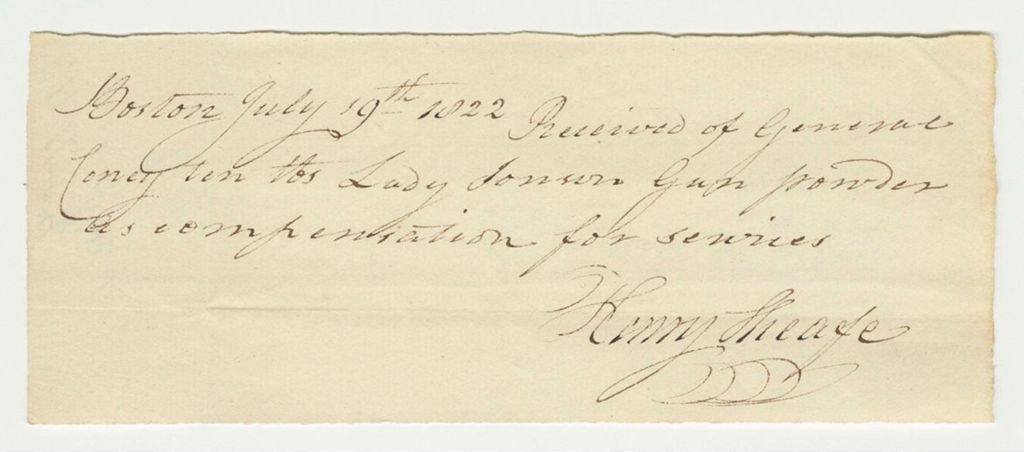 Boston July 19th 1822 Received of General
Coney ten tbs Lady Gun powder
as compensation for servies
Henry Sheafe